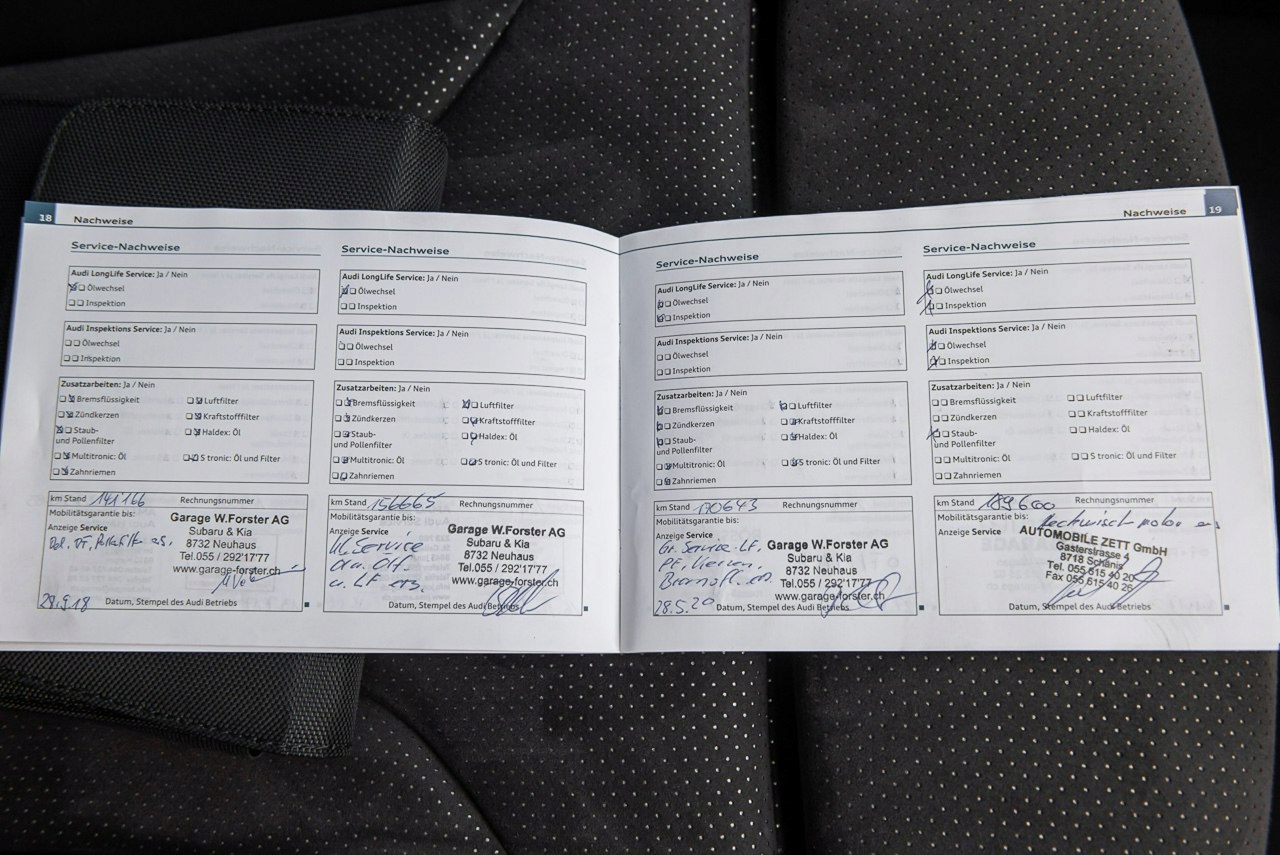 18 Nachweise
Service-Nachweise
Audi LongLife Service: Ja / Nein
Ölwechsel
Inspektion
Audi Inspektions Service: Ja / Nein
Ölwechsel
Inspektion
Zusatzarbeiten: Ja / Nein
Bremsflüssigkeit
Luftfilter
Zündkerzen
Kraftstofffilter
Staub-
und Pollenfilter
Haldex: Öl
Multitronic: Öl
S tronic: Öl und Filter
Zahnriemen
km Stand 141166 Rechnungsnummer
Mobilitätsgarantie bis:
Anzeige Service
Garage W.Forster AG
Subaru & Kia
8732 Neuhaus
Tel.055 / 292'17'77
www.garage-forster.ch
28.9.18 Datum, Stempel des Audi Betriebs
Service-Nachweise
Audi LongLife Service: Ja / Nein
Ölwechsel
Inspektion
Audi Inspektions Service: Ja / Nein
Ölwechsel
Inspektion
Zusatzarbeiten: Ja / Nein
Bremsflüssigkeit
Luftfilter
Zündkerzen
Kraftstofffilter
Staub-
und Pollenfilter
Haldex: Öl
Multitronic: Öl
S tronic: Öl und Filter
Zahnriemen
km Stand 156665 Rechnungsnummer
Mobilitätsgarantie bis:
Anzeige Service
Kl. Service
u. LF ers.
Garage W.Forster AG
Subaru & Kia
8732 Neuhaus
Tel.055 / 292'17'77
www.garage-forster.ch
Datum, Stempel des Audi Betriebs
Nachweise 19
Service-Nachweise
Audi LongLife Service: Ja / Nein
Ölwechsel
Inspektion
Audi Inspektions Service: Ja / Nein
Ölwechsel
Inspektion
Zusatzarbeiten: Ja / Nein
Bremsflüssigkeit
Luftfilter
Zündkerzen
Kraftstofffilter
Staub-
und Pollenfilter
Haldex: Öl
Multitronic: Öl
S tronic: Öl und Filter
Zahnriemen
km Stand 170643 Rechnungsnummer
Mobilitätsgarantie bis:
Anzeige Service
Gr. Service LF,
Garage W.Forster AG
Subaru & Kia
8732 Neuhaus
Tel.055 / 292'17'77
www.garage-forster.ch
28.5.20 Datum, Stempel des Audi Betriebs
Service-Nachweise
Audi LongLife Service: Ja / Nein
Ölwechsel
Inspektion
Audi Inspektions Service: Ja / Nein
Ölwechsel
Inspektion
Zusatzarbeiten: Ja / Nein
Bremsflüssigkeit
Luftfilter
Zündkerzen
Kraftstofffilter
Staub-
und Pollenfilter
Haldex: Öl
Multitronic: Öl
S tronic: Öl und Filter
Zahnriemen
km Stand 189600 Rechnungsnummer
Mobilitätsgarantie bis:
Anzeige Service
AUTOMOBILE ZETT GmbH
Gasterstrasse 4
8718 Schänis
Tel. 055 615 40 20
Fax 055 615 40 26
Datum, Stempel des Audi Betriebs